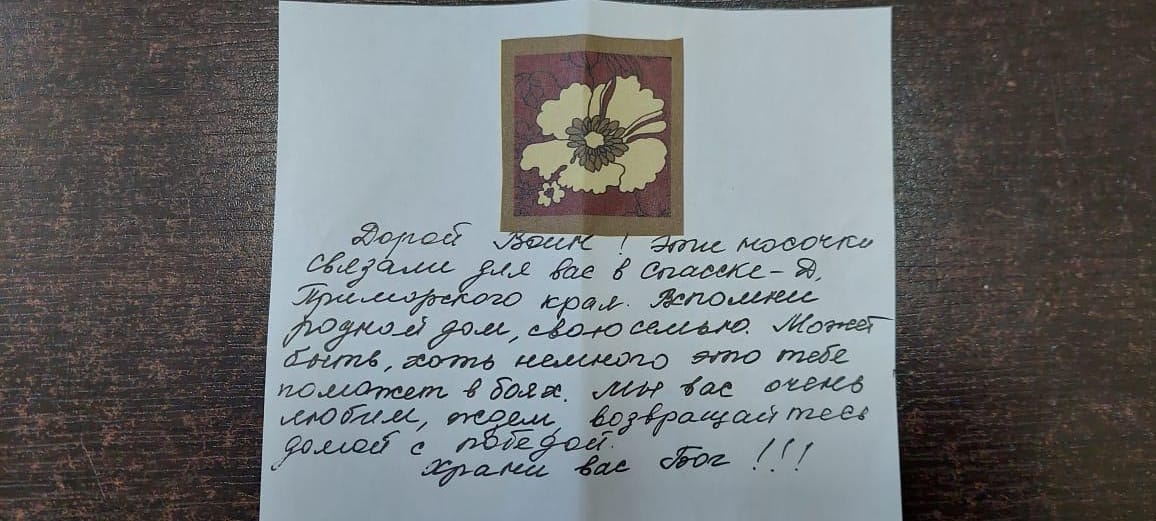 Дорой Воин! эти носочки
связали для вас в Спасске-Д,
Приморского края. Вспомни
родной дом, свою семью. Может
быть, хоть немного это тебе
поможет в боях. Мы вас очень
любим, ждем, возвращайтесь
домой с победой.
Храни вас Бог!!!